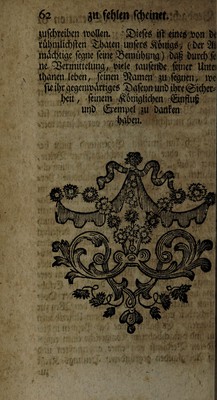 62 zu fehlen scheinet.
zuschreiben wollen. Dieses ist eines von de
rühmlichsten Thaten unsers Königs, (der Al
mächtige segne seine Bemühung) daß durch se
ne Vermittelung, viele tausende seiner Unter
thanen leben, seinen Namen zu segnen, we
sie ihr gegenwärtiges Daseyn und ihre Sicher-
heit, seinem Königlichen Einfluß
und Exempel zu danken
haben.